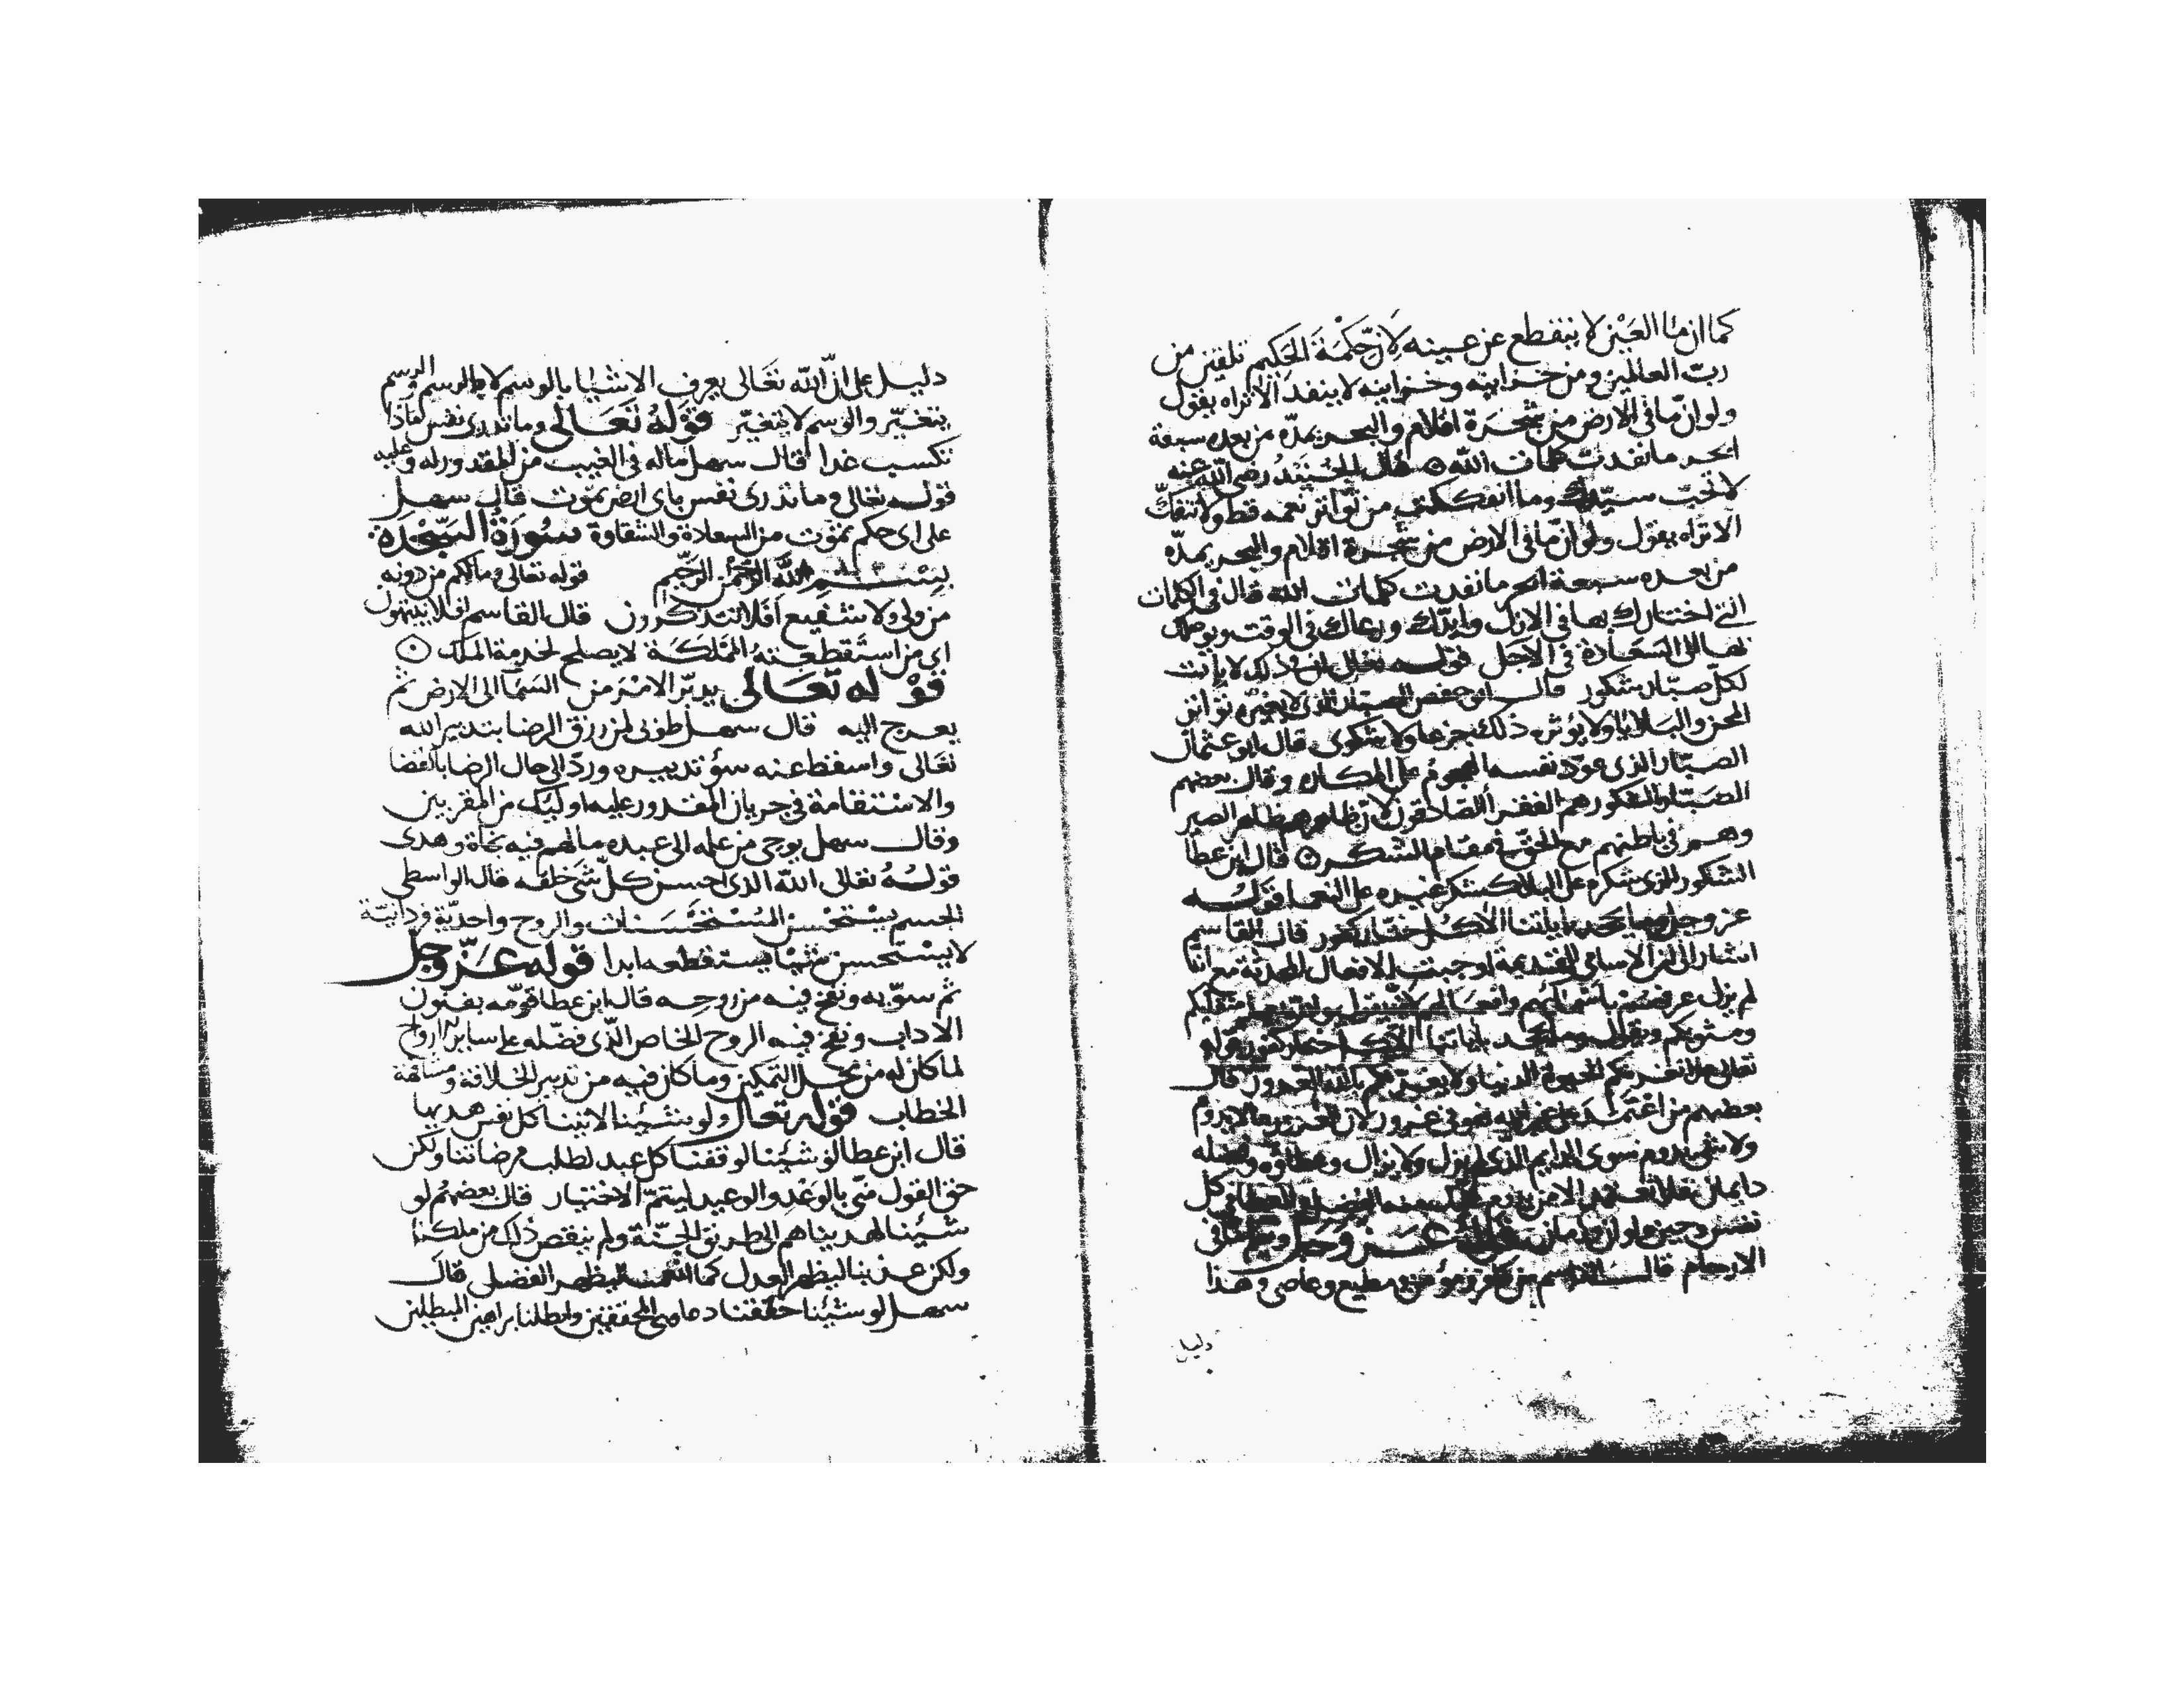 كما ان ماء العين لا ينقطع عن عينه لان حكمة الحكيم تلقين من
رب العالمين ومن خزاينه وخزاينه لا ينفد الا تراه يقول
ولو ان ما في الارض من شجرة اقلام والبحر يمده من بعده سبعة
ابحر ما نفدت كلمات الله قال الجنيد رضي الله عنه
لا تحب سيدك وما انفككت من تواتر نعمه قط ولا تنفك
الا تراه يقول ولو ان ما في الارض من شجرة اقلام والبحر يمده
من بعده سبعة ابحر ما نفدت كلمات الله قال في الكلمات
التي اختارك بها في الازل وايدك ورعاك في الوقت ويوصلك
بها الى السعادة في الاجل قوله تعالى ان في ذلك لايات
لكل صبار شكور قال ابو حفص الصبار الذي لا يغيره تواتر
المحن والبلايا ولا يؤثره ذلك جزعا ولا شكوى قال ابو عثمان
الصبار الذي عود نفسه الهجوم على المكاره وقال بعضهم
الصبار الشكور هم الفقراء الصادقون لان ظاهرهم ظاهر الصبر
وهم في باطنهم مع الحق في مقام الشكر قال ابن عطا
الشكور الذي شكره على البلا كشكر غيره على النعما قوله
عز وجل وما يجحد باياتنا الا كل ختار كفور قال القاسم
اشار الى ان الاسامي القديمة اوجبت الافعال المحدثة مع
لم يزل عرفهم باسمائهم وافعالهم متقلبكم
ومثويكم ويقول وما يجحد باياتنا الا كل ختار كفور قوله
تعالى فلا تغرنكم الحيوة الدنيا ولا يغرنكم بالله الغرور قال
بعضهم من اعتمد على غير الله فهو في غرور لان الغرور ما لا يدوم
ولا شيء يدوم سوى الدايم الذي لم يزل ولا يزال وعطاؤه وفضله
دايمان فلا تعتمد الا من يدوم عليك منه الفضل والعطا في كل
نفس وحين واوان وزمان قوله عز وجل ويعلم ما في
الارحام قال القاسم من كافر ومؤمن ومطيع وعاص وهذا
دليل
دليل على ان الله تعالى يعرف الاشيا بالوسم لا بالرسم والرسم
يتغير والوسم لا يتغير قوله تعالى وما تدري نفس ماذا
تكسب غدا قال سهل ماله في الغيب من المقدور له وعليه
قوله تعالى وما تدري نفس باي ارض تموت قال سهل
على اي حكم تموت من السعادة والشقاوة سورة السجده
بسم الله الرحمن الرحيم قوله تعالى وما لكم من دونه
من ولي ولا شفيع افلا تتذكرون قال القاسم افلا ينتبهون
اي من استقطعته المملكة لا يصلح لخدمة الملك
قوله تعالى يدبر الامر من السما الى الارض ثم
يعرج اليه قال سهل طوبى لمن رزق الرضا بتدبير الله
تعالى واسقط عنه سؤ تدبيره ورد الى حال الرضا بالقضا
والاستقامة في جريان المقدور عليه اوليك من المقربين
وقال سهل يوحي من علمه الى عبده ما لهم فيه نجاة وهدى
قوله تعالى الله الذي احسن كل شي خلقه قال الواسطي
الجسم يستحسن المستحسنات والروح واحدية فردانية
لا يستحسن شيا يستقطعه ابدا قوله عز وجل
ثم سويه ونفخ فيه من روحه قال ابن عطا قومه بفنون
الاداب ونفخ فيه الروح الخاص الذي فضله على ساير ارواح
لما كان له من محل التمكين وما كان فيه من تدبير الخلافة ومشافهة
الخطاب قوله تعالى ولو شئنا لاتينا كل نفس هديها
قال ابن عطا لو شئنا لوفقنا كل عبد لطلب مرضاتنا ولكن
حق القول مني بالوعد والوعيد ليتم الاختيار قال بعضهم لو
شئنا لهديناهم الى طريق الجنة ولم ينقص ذلك من ملكنا
ولكن عذبنا ليظهر العدل كما انعمنا ليظهر الفضلى قال
سهل لو شئنا حققنا دعاوى المحققين وابطلنا براهين المبطلين